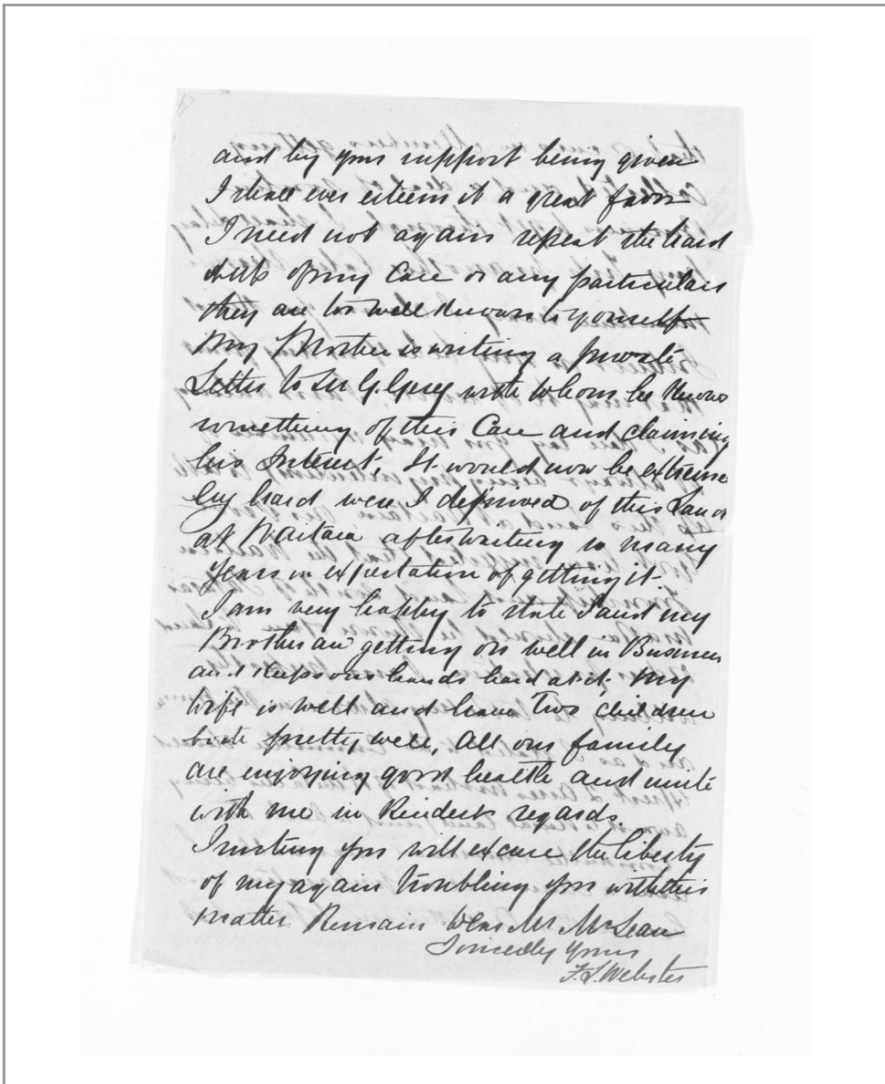 and by your support being given
I shall ever esteem it a great favor
I need not again repeat the hard
ship of my Case or any particulars
they are too well known to yourself
My Brother is writing a private
Letter to Sir G. Grey with whom he knows
something of this Case and claiming
his Interest. It would now be extreme
ly hard were I deprived of this Land
at Waitara after waiting so many
years in expectation of getting it.
I am very happy to state I and my
Brother are getting on well in Business
and keeps our hands hard at it. My
Wife is well and have two children
both pretty well, All our family
are enjoying good health and unite
with me in Kindest regards.
Trusting you will excuse the liberty
of my again troubling you with this
matter Remain Dear Mr McLean
Sincerely yours
F. L. Webster